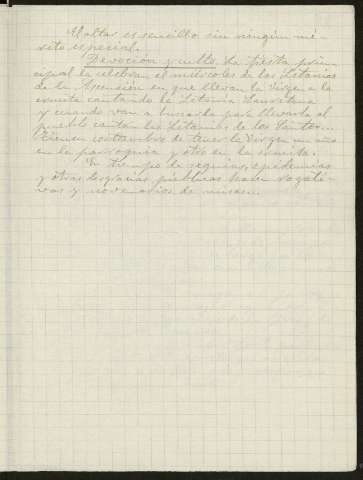 El altar es sencillo sin ningún mé-
rito especial.
Devoción y culto. La fiesta prin-
cipal la celebran el miércoles de las Letanías
de la Ascensión en que llevan la Virgen a la
ermita cantando la Letanía Lauretana
y cuando van a buscarla para llevarla al
pueblo cantan las Letanías de los Santos...
Tienen costumbre de tener la Virgen un año
en la parroquia y otro en la ermita.
En tiempo de sequías, epidemias
y otras desgracias públicas hacen rogati-
vas y novenarios de misas...